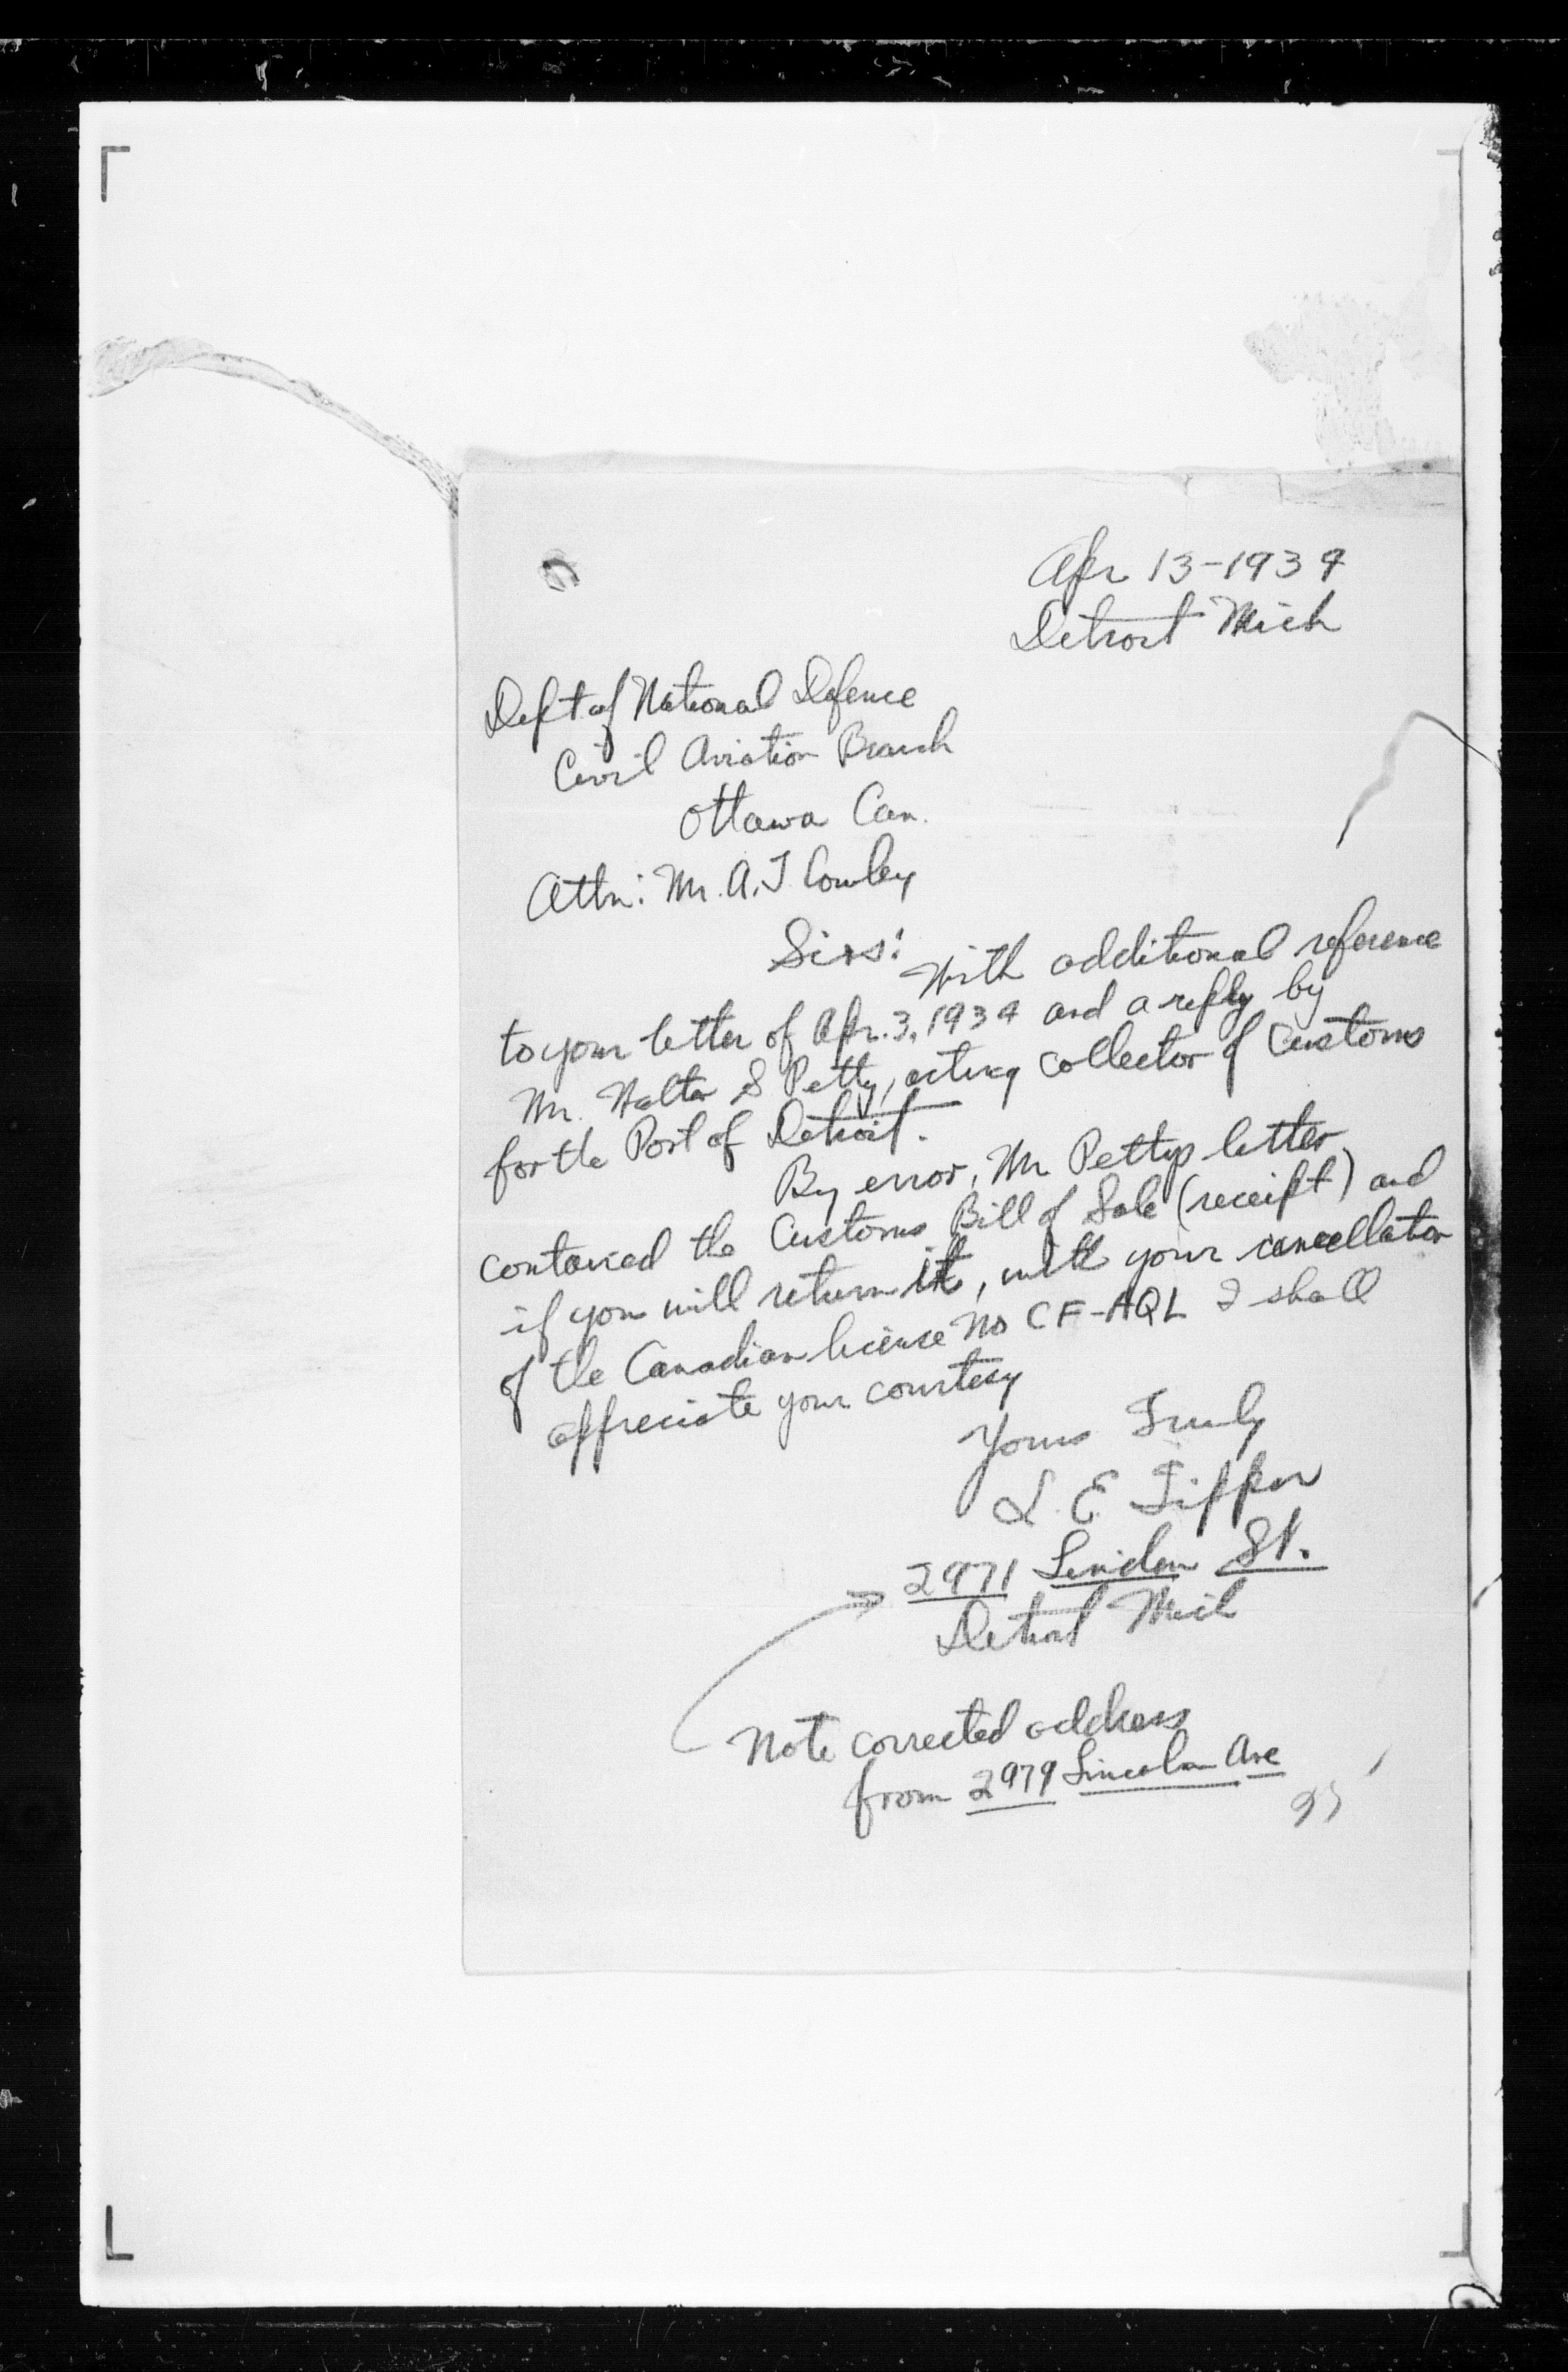 Apr 13-1934
Detroit Mich
Dept of National Defence
Civil Aviation Branch
Ottawa Can.
Attn: Mr. A.T Cowley
Sirs:
With additional reference
to your letter of Apr. 3, 1934 and a reply by
Mr. Walter S Petty, acting collector of Customs
for the Port of Detroit.
By error, Mr Pettys letter
contained the Customs Bill of Sale (receipt) and
if you will return it, with your cancellation
of the Canadian license No CF-AQL I shall
appreciate your courtesy
Yours Truly
L. E. Tipper
2971 Lindon St.
Detroit Mich
Note corrected address
from 2979 Lincoln Ave